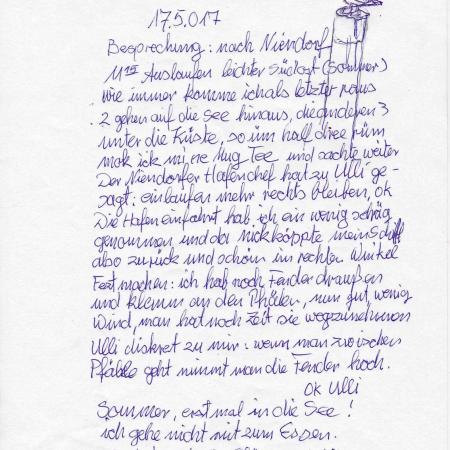 17.5.017
Besprechung: nach Niendorf
11¹⁵ Auslaufen leichter Südost (Sommer)
wie immer komme ich als letzter raus
2 gehen auf die See hinaus, die anderen 3
unter die Küste, so üm half dree rüm
mok ick mi ne Mug Tee und sachte weiter
Der Niendorfer Hafenchef hat zu Ulli ge-
sagt: einlaufen mehr rechts bleiben, ok
Die Hafeneinfahrt hab ich ein wenig schräg
genommen und da nickköppte mein Schiff
also zurück und schön im rechten Winkel
Festmachen: ich hab noch Fender draußen
und klemm an den Pfählen, nun gut wenig
Wind, man hat noch Zeit sie wegzunehmen
Ulli diskret zu mir: wenn man zwischen
Pfähle geht nimmt man die Fender hoch.
Ok Ulli
Sommer, erst mal in die See!
ich gehe nicht mit zum Essen.